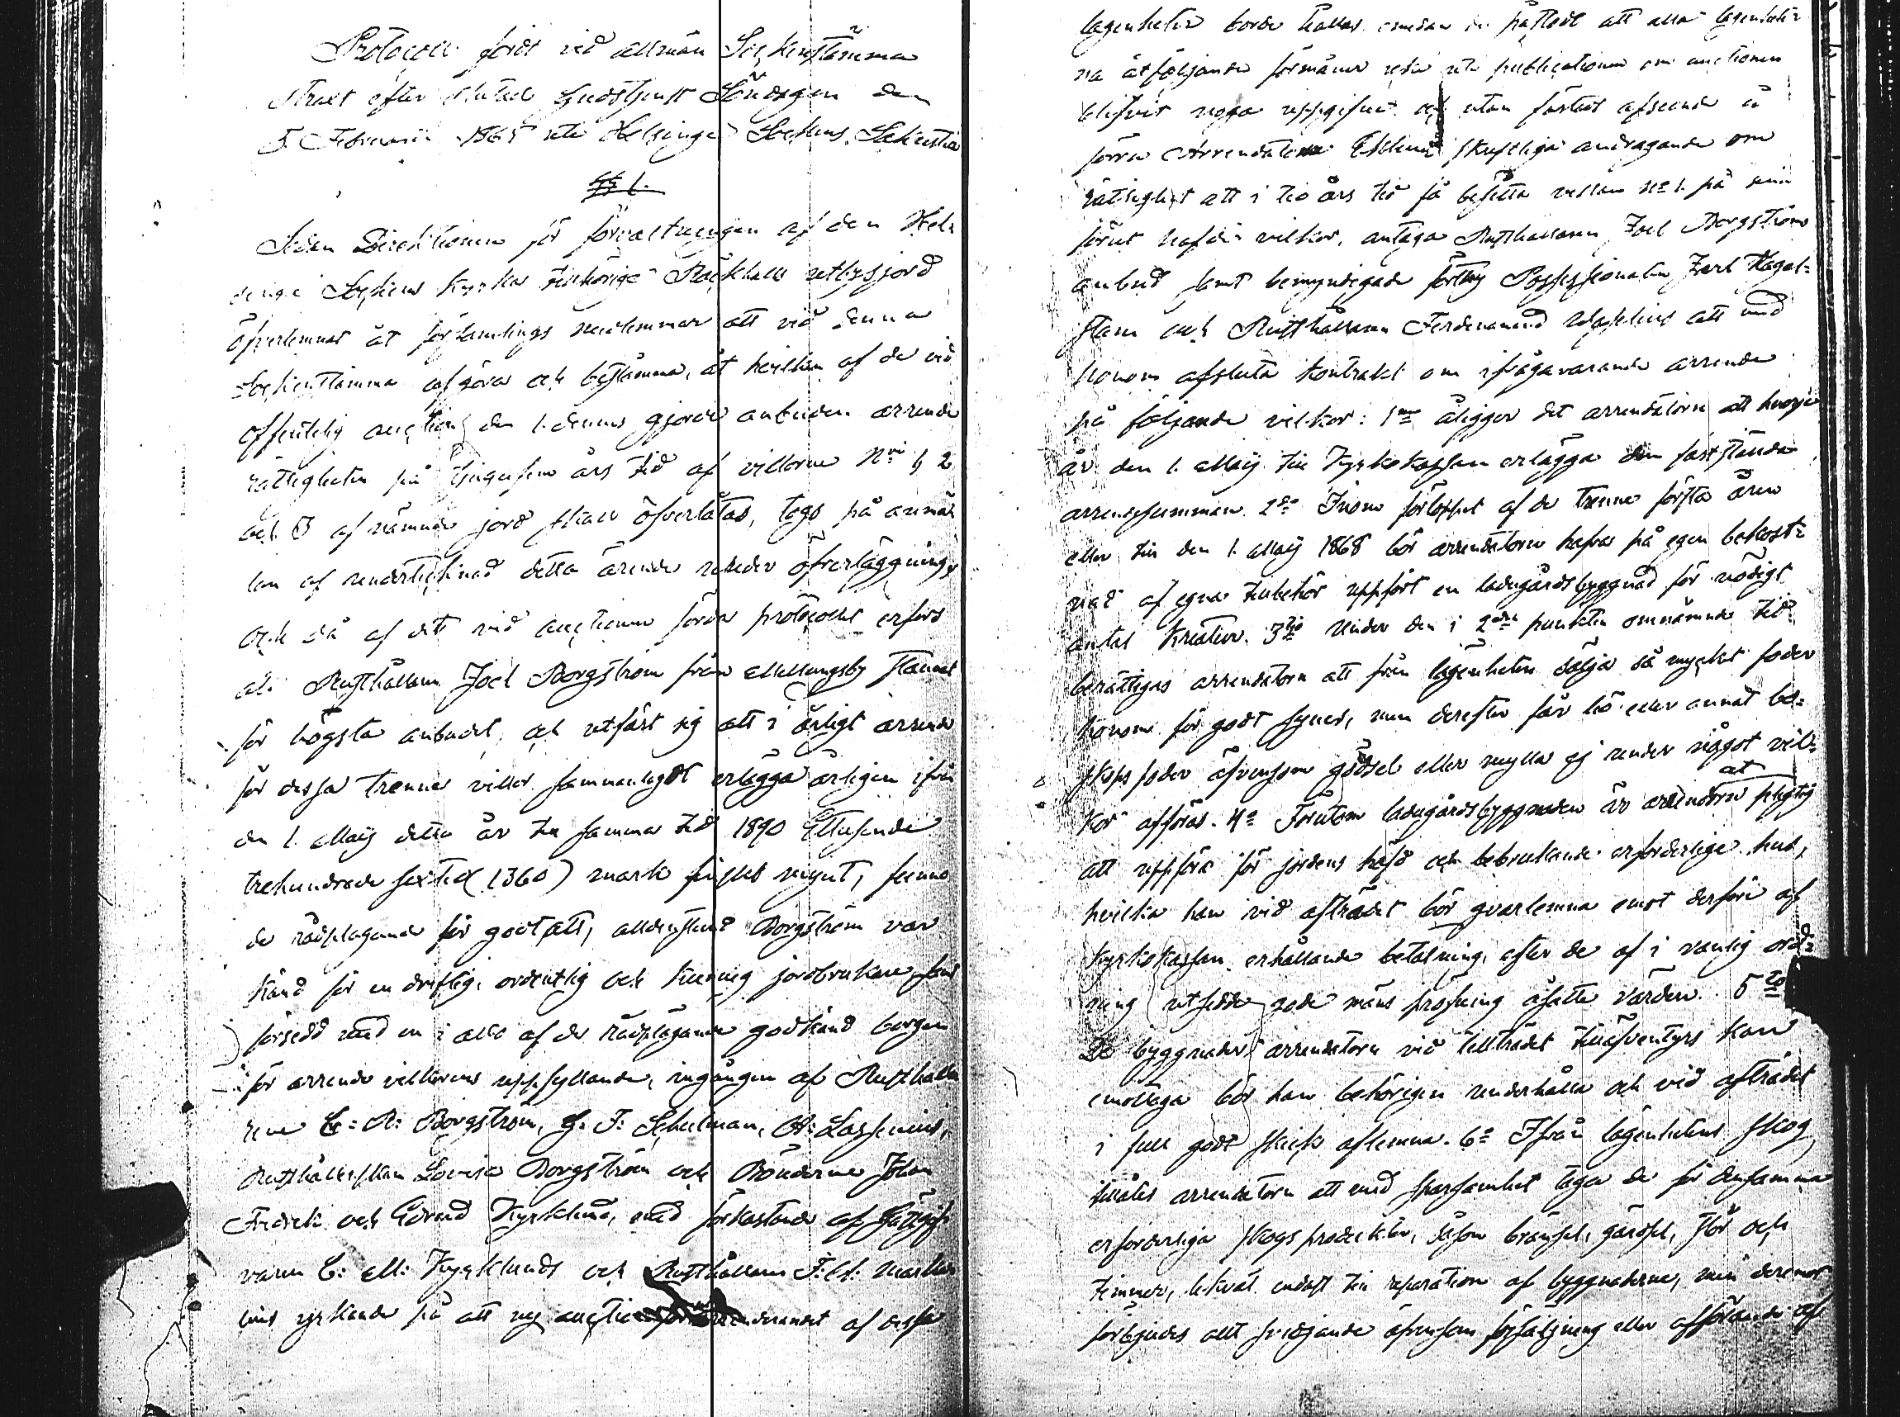 Protocoll fördt vid allmän Sockenstämma
straxt efter slutad Gudstjenst Söndagen den
5 Februarii 1865 uti Helsinge Sockens Sakristia
§ 1.
Sedan Direktionen för förvaltningen af den Hel-
singe Sockens Kyrka tillhörige Bäckhall utbysjord
öfverlemnat åt församlings medlemmar att vid denna
Sockenstämma afgöra och bestämma, åt hvilken af de vid
offentlig auction den 1. dennes gjorde anbuden arrende
rättigheten på tjugufem års tid af villorne Nris 1, 2
och 3 af nämnde jord skall öfverlåtas, togs på anmä-
lan af undertecknad detta ärende under öfverläggning,
och då af det vid auctionen förda protocoll erfors
att Rusthållaren Joel Borgström från Mellungsby stannat
för högsta anbudet, och utfäst sig att i årligt arrende
för dessa trenne villor sammanlagdt erlägga årligen ifrån
den 1. Maij detta år till samma tid 1890 Ettusende
trehundrade sextio (1360) mark finskt mynt, funno
de rådplägande för godt att, alldenstund Borgström var
känd för en driftig, ordentlig och kunnig jordbrukare samt
försedd med en i allo af de rådplägande godkänd borgen
för arrende villkorens uppfyllande, ingången af Rusthålla
rene C: R: Borgström, G: F: Schulman, A: Lassenius,
Rusthållerskan Lovisa Borgström och Bönderne Johan
Fredrik och Edvard Kyrklund, med förkastande af Gästgif-
varen C: M: Kyrklunds och Rusthållaren
yrkande på att ny auction af dessa
lägenheter borde hållas, emedan de påstodt att alla lägenheter-
na åtföljande förmåner icke uti publicationen om auctionen
blifvit noga uppgifne och utan fästat afseende å
förra Arrendatorn Eklunds skriftliga andragande om
rättighet att i tio års tid få besitta villan No 1. på sina
förut hafda vilkor, antaga Rusthållaren Joel Borgströms
anbud samt bemyndigade Possessionaten Karl Hagel-
stam och Rusthållaren Ferdinand Wasselius att med
honom afsluta kontrakt om ifrågavarande arrende
på följande vilkor: 1mo åligger det arrendatorn att hvarje
år den 1. Maij till Kyrkokassan erlägga den fastställda
arrendesumman. 2do Inom förloppet af de trenne första åren
eller till den 1. Maij 1868 bör arrendatorn hafva på egen bekost-
nad af egna tillbehör uppfört en ladugårdsbyggnad för nödigt
antal kreatur. 3tio Under den i 2dra punkten omnämnda tid
berättigas arrendatorn att från lägenheten sälja så mycket foder
honom för godt synes, men derefter får hö eller annat bo-
skaps foder äfvensom gödsel eller mylla ej under något vil-
kor afföras. 4o Förutom ladugårdsbyggnaden är arrendatorn pligtig
att uppföra för jordens häfd och bebrukande erforderlige hus,
hvilka han vid afträdet bör qvarlemna emot derföre af
Kyrkokassan erhållande betalning, efter de af i vanlig ord-
ning utsedde gode mäns pröfning åsatte värden. 5to
De byggnader arrendatorn vid tillträdet tilläfventyrs kan
emottaga bör han behörigen underhålla och vid afträdet
i full godt skick aflemna. 6o Ifrån lägenhetens skog
tillåtes arrendatorn att med sparsamhet taga de för densamma
erforderliga skogsprodukter, såsom bränsel, gärdsel, stör och
timmer, likväl endast till reparation af byggnaderne, men deremot
förbjudes allt svedjande äfvensom försäljning eller afförande af